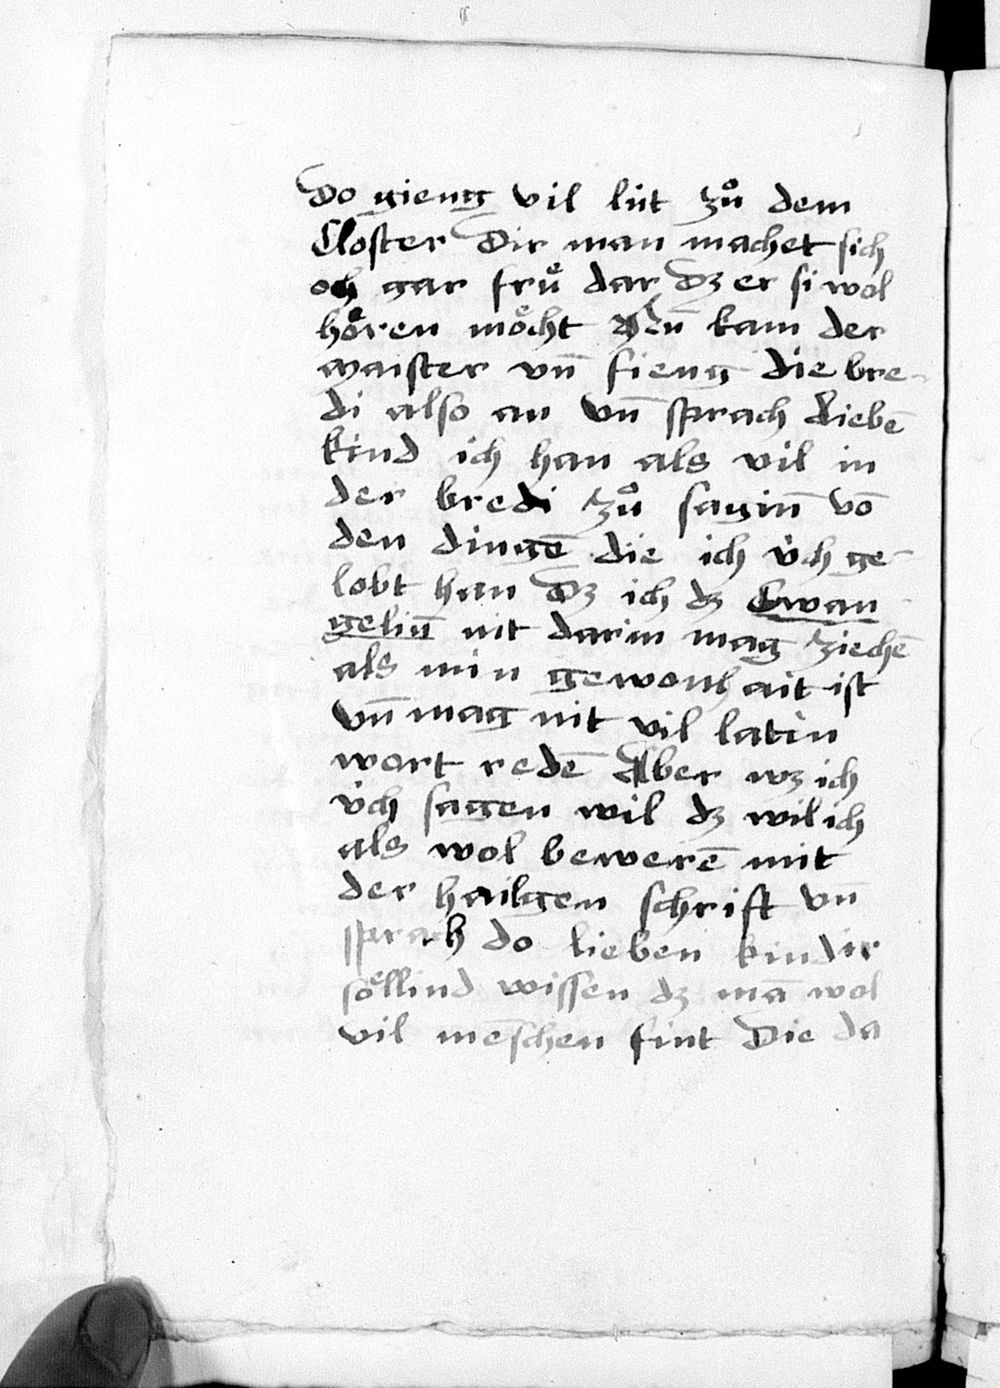 Do gieng vil lüt zů dem
Closter Dir man machet sich
och gar frůͤ dar Dz er si wol
hoͤren moͤcht Nun̄ kam der
maister vn̄ fieng die bre-
di also an vn̄ sprach Liebē
kind ich han als vil in
der bredi zů sagin̄ vō
den dingē die ich v̇ch ge-
lobt han Dz ich dz Ewan-
geliū nit darin mag ziechē
als min gewonhait ist
vn̄ mag nit vil latin
wort redē Aber wz ich
v̇ch sagen wil dz wil ich
als wol bewerē mit
der hailgen schrift vn̄
sprach do lieben kindir
soͤllind wissen dz mā wol
vil mēschen fint Die da